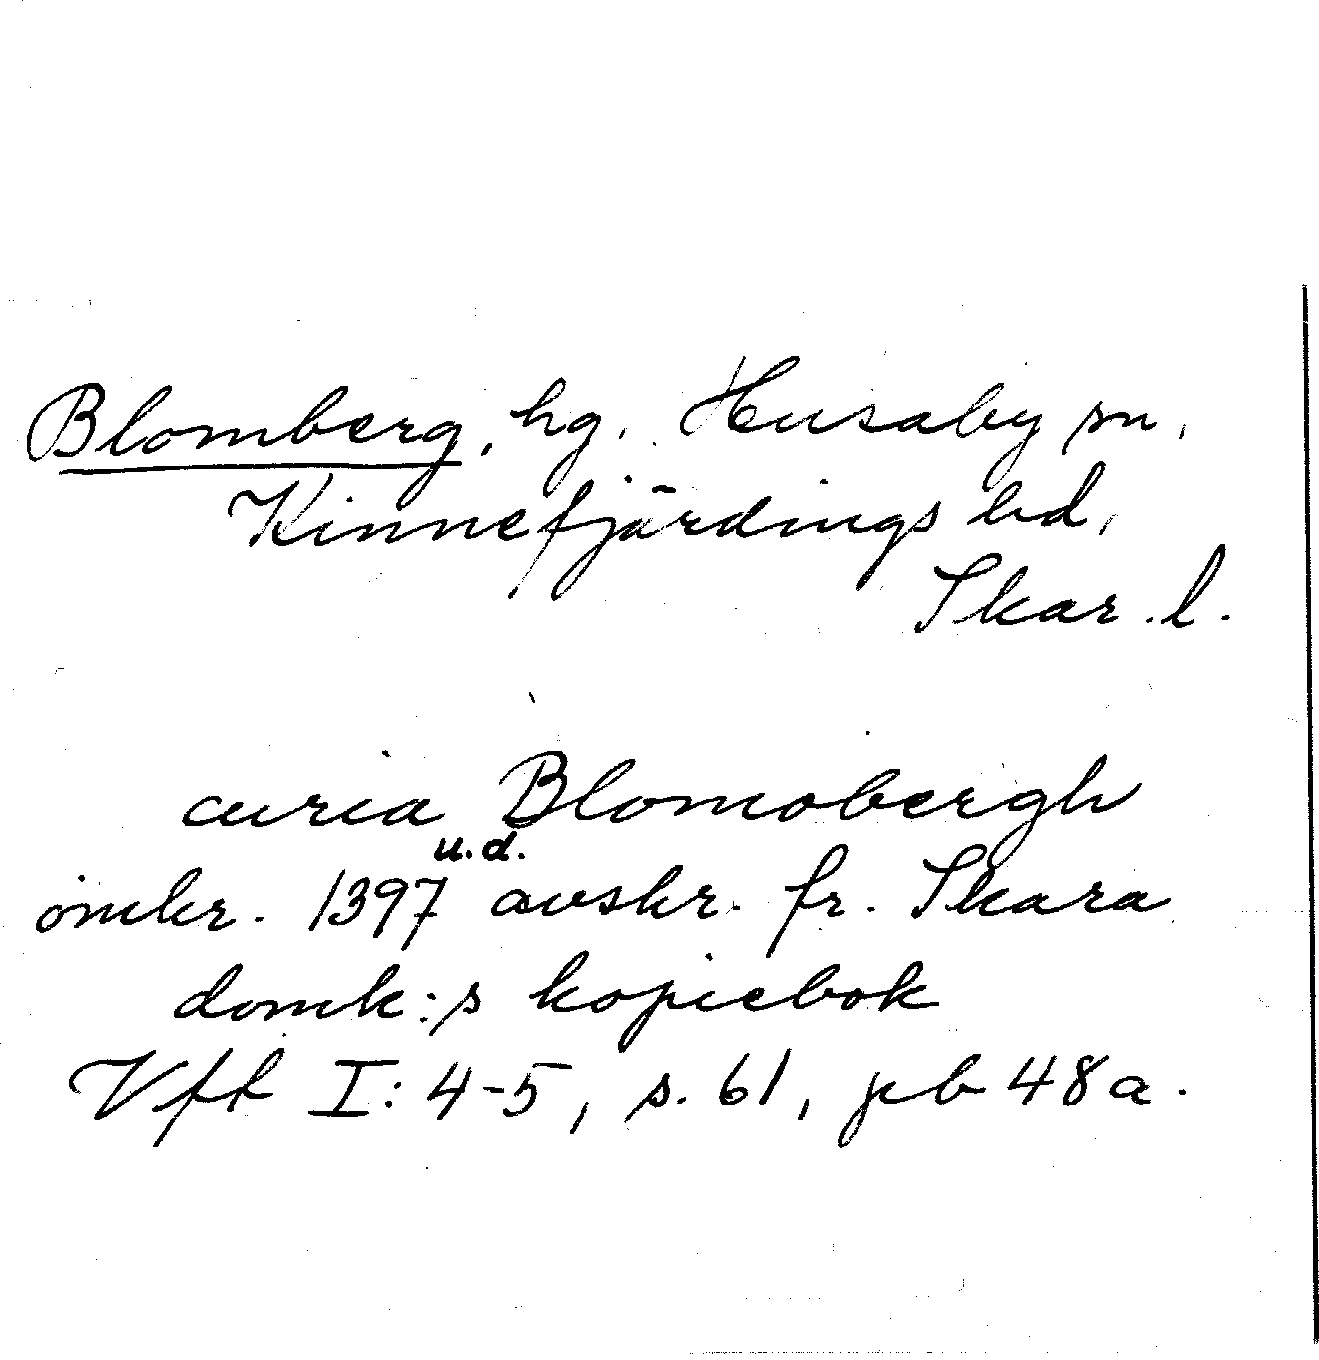 Blomberg, hg. Husaby sn,
Kinnefjärdings hd,
Skar. l.
curia Blomobergh
u.d.
omkr. 1397 avskr. fr. Skara
domk:s kopiebok
Vft I: 4-5, s. 61, pb 48a.